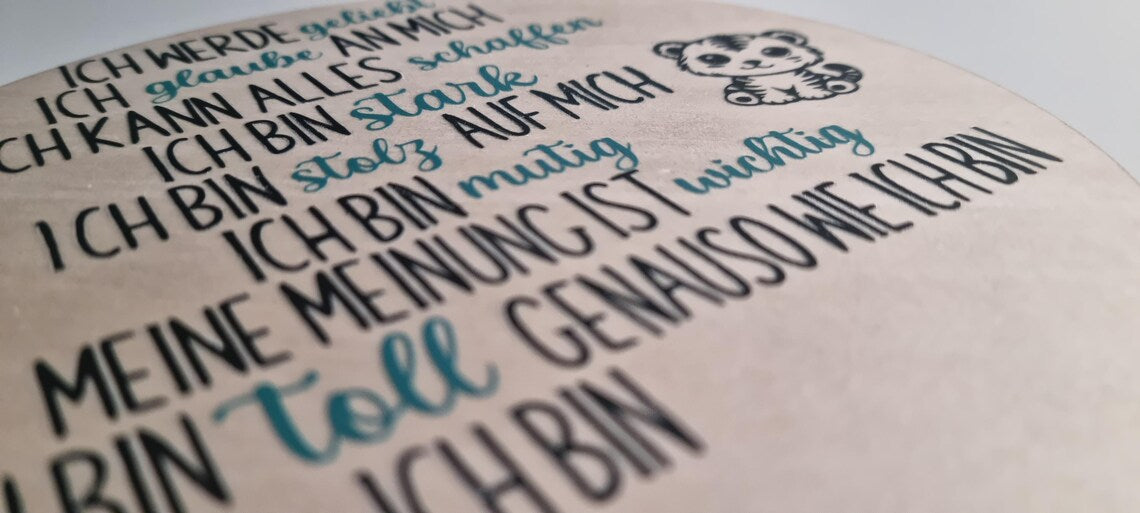 ICH WERDE geliebt
ICH glaube AN MICH
CH KANN ALLES schaffen
ICH BIN stark
ICH BIN stolz AUF MICH
ICH BIN mutig
MEINE MEINUNG IST wichtig
BIN toll GENAUSO WIE ICH BIN
ICH BIN